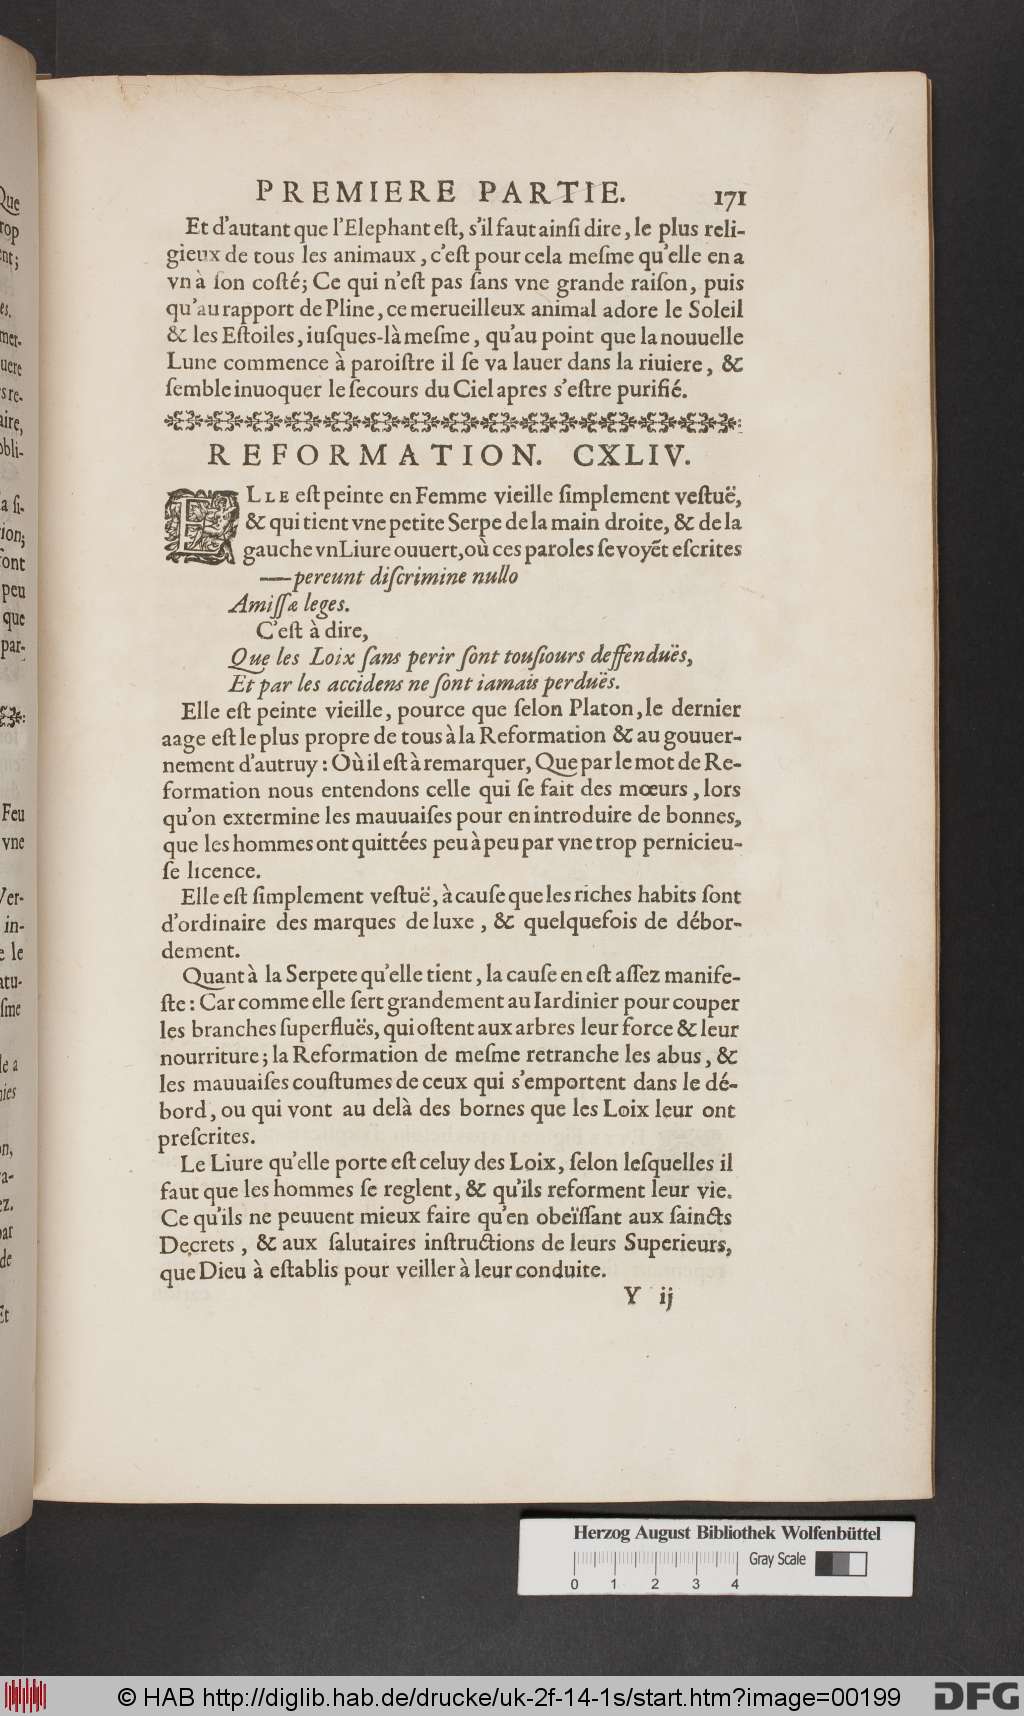 PREMIERE PARTIE. 171
Et d'autant que l'Elephant eſt, s'il faut ainſi dire, le plus reli-
gieux de tous les animaux, c'eſt pour cela meſme qu'elle en a
vn à ſon coſté; Ce qui n'eſt pas ſans vne grande raiſon, puis
qu'au rapport de Pline, ce merueilleux animal adore le Soleil
& les Eſtoiles, iuſques-là meſme, qu'au point que la nouuelle
Lune commence à paroiſtre il ſe va lauer dans la riuiere, &
ſemble inuoquer le ſecours du Ciel apres s'eſtre purifié.
REFORMATION. CXLIV.
ELLE eſt peinte en Femme vieille ſimplement veſtuë,
& qui tient vne petite Serpe de la main droite, & de la
gauche vn Liure ouuert, où ces paroles ſe voyẽt eſcrites
—pereunt diſcrimine nullo
Amiſſæ leges.
C'eſt à dire,
Que les Loix ſans perir ſont touſiours deffenduës,
Et par les accidens ne ſont iamais perduës.
Elle eſt peinte vieille, pource que ſelon Platon, le dernier
aage eſt le plus propre de tous à la Reformation & au gouuer-
nement d'autruy: Où il eſt à remarquer, Que par le mot de Re-
formation nous entendons celle qui ſe fait des mœurs, lors
qu'on extermine les mauuaiſes pour en introduire de bonnes,
que les hommes ont quittées peu à peu par vne trop pernicieu-
ſe licence.
Elle eſt ſimplement veſtuë, à cauſe que les riches habits ſont
d'ordinaire des marques de luxe, & quelquefois de débor-
dement.
Quant à la Serpete qu'elle tient, la cauſe en eſt aſſez manife-
ſte: Car comme elle ſert grandement au Iardinier pour couper
les branches ſuperfluës, qui oſtent aux arbres leur force & leur
nourriture; la Reformation de meſme retranche les abus, &
les mauuaiſes couſtumes de ceux qui s'emportent dans le dé-
bord, ou qui vont au delà des bornes que les Loix leur ont
preſcrites.
Le Liure qu'elle porte eſt celuy des Loix, ſelon leſquelles il
faut que les hommes ſe reglent, & qu'ils reforment leur vie.
Ce qu'ils ne peuuent mieux faire qu'en obeïſſant aux ſaincts
Decrets, & aux ſalutaires inſtructions de leurs Superieurs,
que Dieu à eſtablis pour veiller à leur conduite.
Y ij
Herzog August Bibliothek Wolfenbüttel
Gray Scale
0 1 2 3 4
© HAB http://diglib.hab.de/drucke/uk-2f-14-1s/start.htm?image=00199
DFG